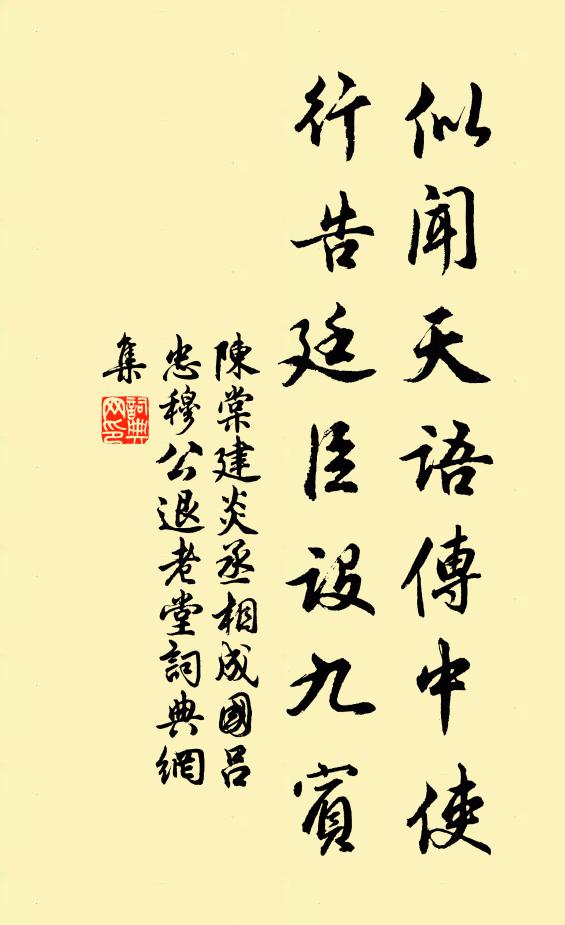 似闻天语傳中使
行告廷臣設九賓
陳棠建炎丞相成國呂
忠穆公退老堂詞典網
集
詞典網印